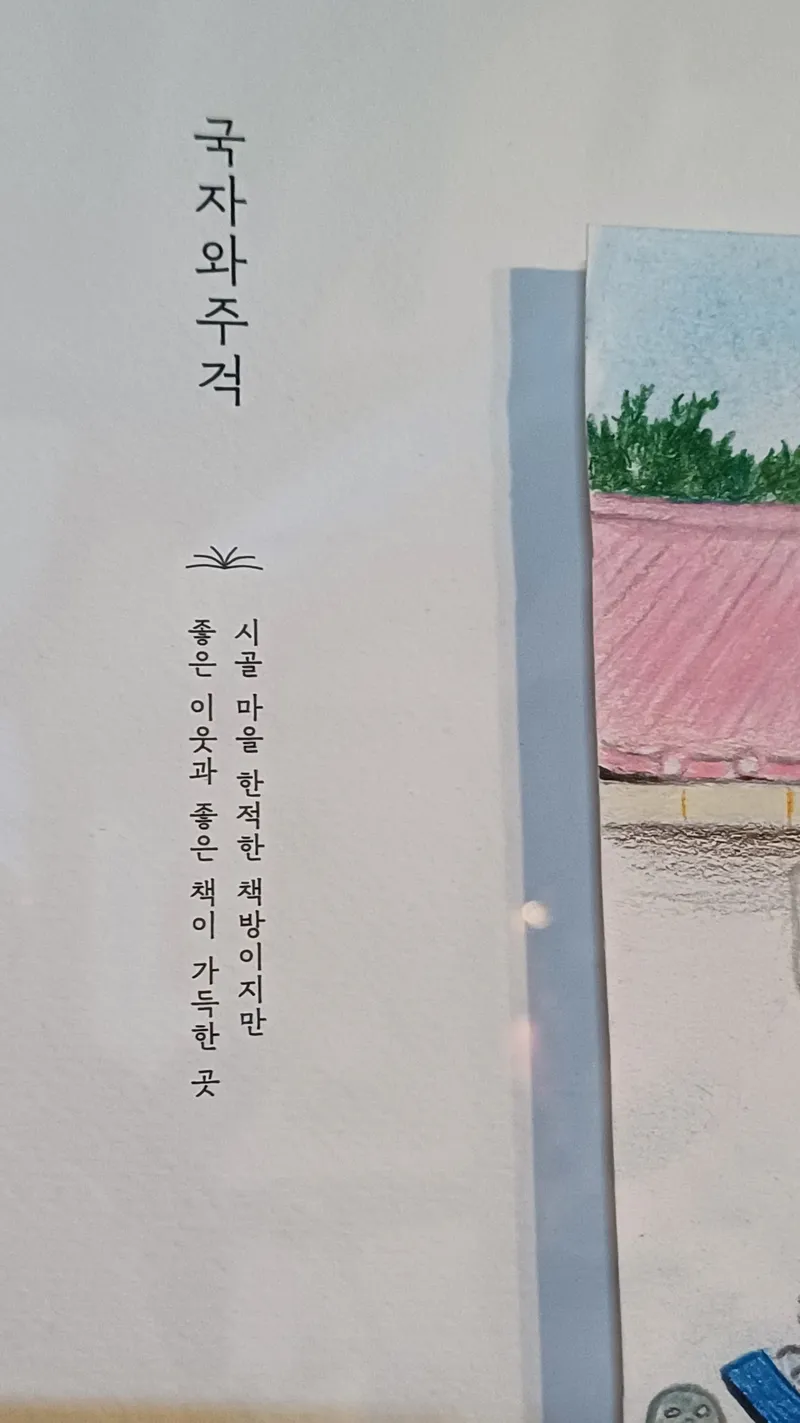 국자와주걱
시골 마을 한적한 책방이지만
좋은 이웃과 좋은 책이 가득한 곳